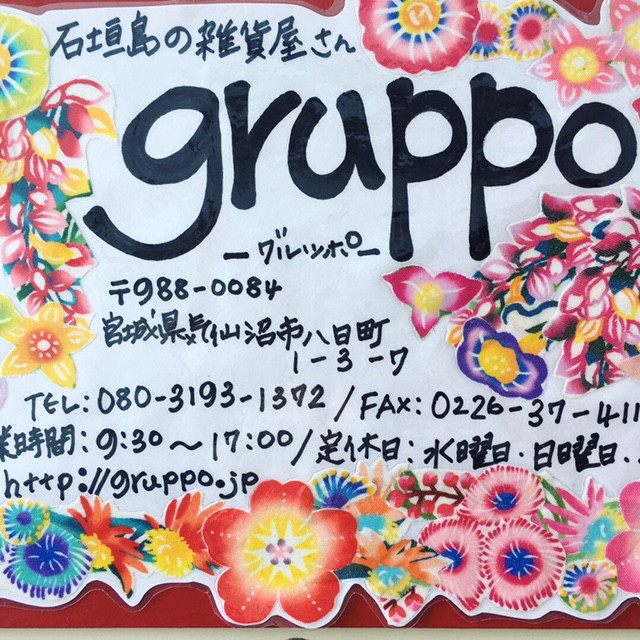 石垣島の雑貨屋さん
gruppo
ーグルッポー
〒988-0084
宮城県気仙沼市八日町
1-3-7
TEL: 080-3193-1372 / FAX: 0226-37-411
業時間: 9:30～17:00 / 定休日: 水曜日・日曜日..
http://gruppo.jp